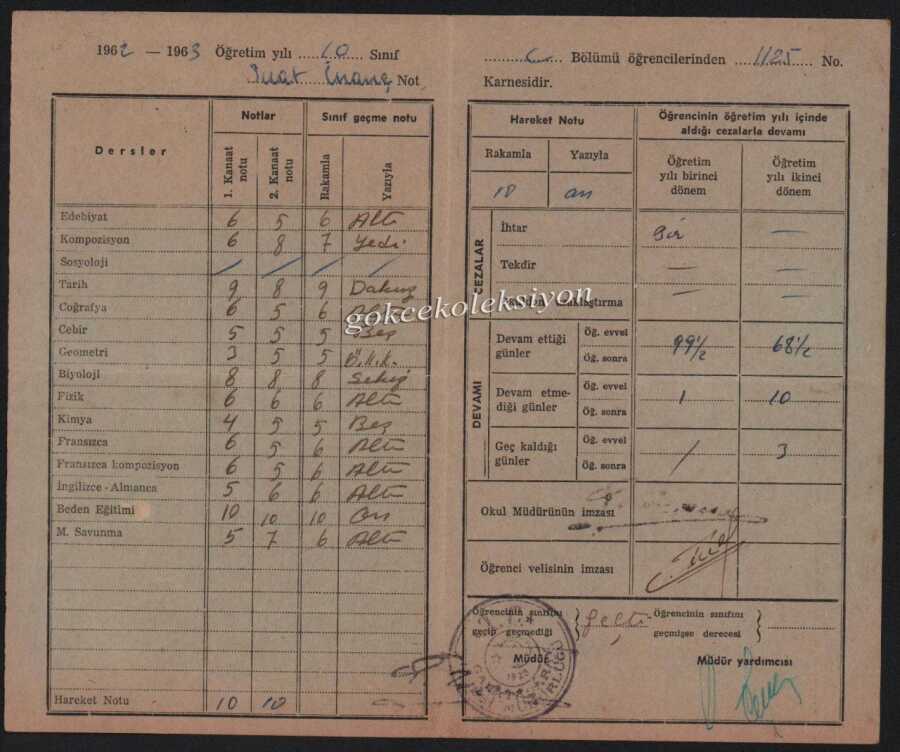 1962 — 1963 Öğretim yılı ....10.... Sınıf
Suat İnanç Not
Dersler Notlar Sınıf geçme notu
1. Kanaat notu 2. Kanaat notu Rakamla Yazıyla
Edebiyat 6 5 6 Altı
Kompozisyon 6 8 7 Yedi
Sosyoloji / / / /
Tarih 9 8 9 Dokuz
Coğrafya 6 5 6 Altı
Cebir 5 5 5 Beş
Geometri 3 5 5 Ö.k.k.
Biyoloji 8 8 8 Sekiz
Fizik 6 6 6 Altı
Kimya 4 5 5 Beş
Fransızca 6 5 6 Altı
Fransızca kompozisyon 6 5 6 Altı
İngilizce - Almanca 5 6 6 Altı
Beden Eğitimi 10 10 10 On
M. Savunma 5 7 6 Altı
Hareket Notu 10 10
C Bölümü öğrencilerinden 1125 No.
Karnesidir.
Hareket Notu Öğrencinin öğretim yılı içinde
aldığı cezalarla devamı
Rakamla Yazıyla Öğretim yılı birinci dönem Öğretim yılı ikinci dönem
10 on
CEZALAR
İhtar Bir —
Tekdir — —
gokcekoleksiyon
— —
DEVAMI
Devam ettiği günler Öğ. evvel Öğ. sonra 99½ 68½
Devam etmediği günler Öğ. evvel Öğ. sonra 1 10
Geç kaldığı günler Öğ. evvel Öğ. sonra / 3
Okul Müdürünün imzası
Öğrenci velisinin imzası
Öğrencinin sınıfını geçip geçmediği } Geçti Öğrencinin sınıfını geçmişse derecesi }
Müdür Müdür yardımcısı